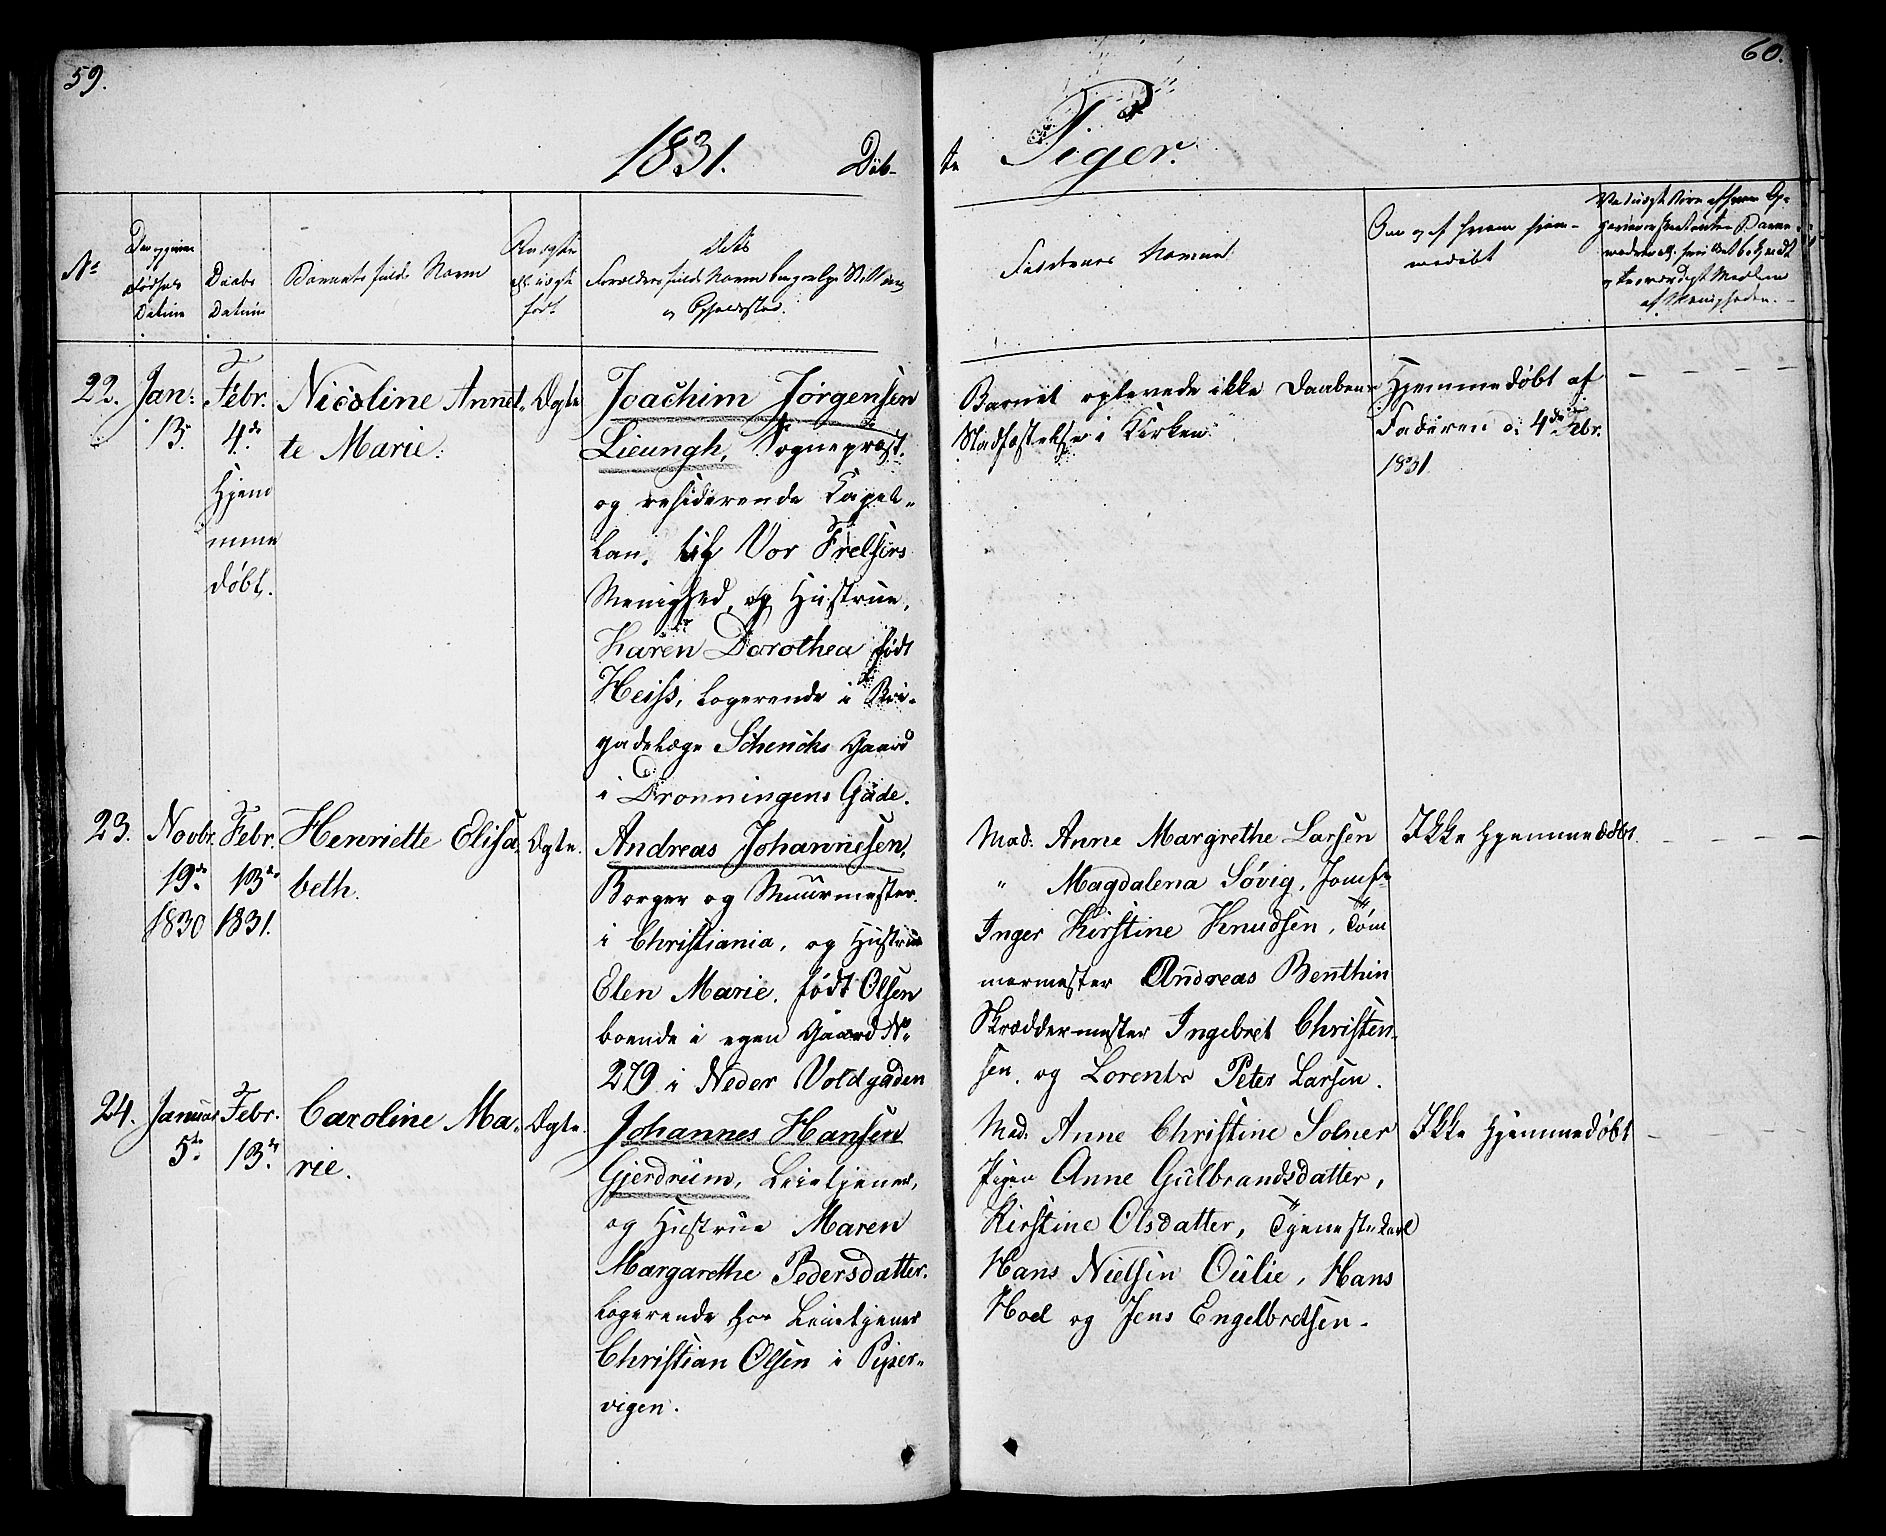 59.
60.
1831. Døb-
te Piger.
No
Den opgivne
Fødsels
Datum
Daabs
Datum
Barnets fulde Navn
Om ægte
ell. uægte
født
Dets
Forældres fulde Navn borgerlige Stilling
og Opholdssted.
Faddernes Navne
Om og af hvem hjem-
medøbt
22.
Jan:
13.
Febr.
4de
Hjem
mme
døbt.
Nicoline Annet-
te Marie.
Ægte
Joachim Jørgensen
Lieungh, Sognepræst
og residerende Capel-
lan, til Vor Frelsers
Menighed, og Hustrue,
Karen Dorothea født
Heiss, logerende i Bri-
gadelæge Schencks Gaard
i Dronningens Gade.
Barnet oplevede ikke Daabens
Stadfæstelse i Kirken.
Hjemmedøbt af
Faderen d: 4de Febr.
1831.
23.
Novbr.
19de
1830
Febr.
13de
1831.
Henriette Elisa-
beth.
Ægte.
Andreas Johannesen,
Borger og Muurmester
i Christiania, og Hustrue
Elen Marie, født Olsen
boende i egen Gaard No
279 i Neder Voldgaden
Mad. Anne Margrethe Larsen
" Magdalena Søvig, Jomfr
Inger Kirstine Knudsen, Tøm
mermester Andreas Benthin
Skræddermester Ingebret Christen-
sen, og Lorents Peter Larsen.
Ikke hjemmedøbt.
24.
Januar
5te
Febr.
13de
Caroline Ma-
rie.
Ægte.
Johannes Hansen
Gjerdrum, Leietjener,
og Hustrue Maren
Margarethe Pedersdatter.
logerende hos Leietjener
Christian Olsen i Piper-
vigen.
Mad. Anne Christine Solner
Pigen Anne Gulbrandsdatter,
Kirstine Olsdatter, Tjenestekarl
Hans Nielsen Oulie, Hans
Hoel og Jens Engelbretsen.
Ikke hjemmedøbt